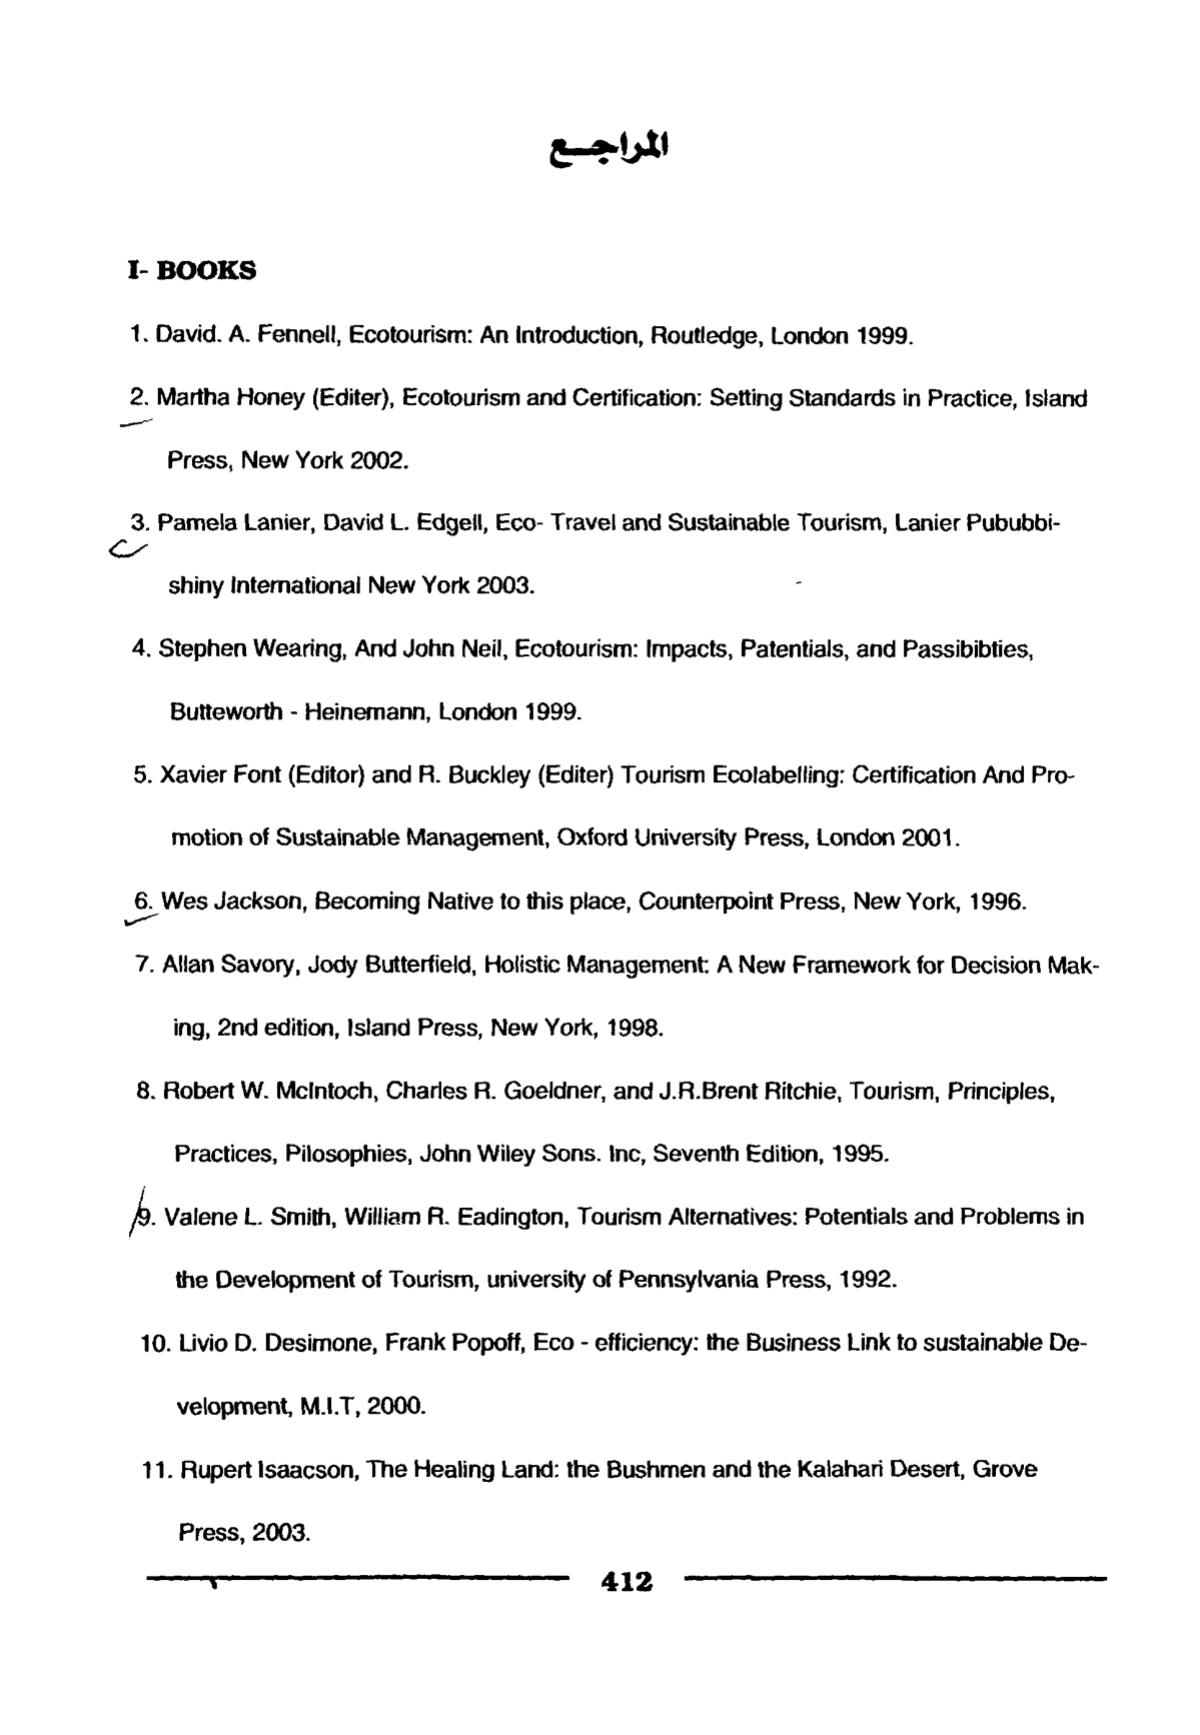 المراجع
I- BOOKS
1. David. A. Fennell, Ecotourism: An Introduction, Routledge, London 1999.
2. Martha Honey (Editer), Ecotourism and Certification: Setting Standards in Practice, Island
Press, New York 2002.
3. Pamela Lanier, David L. Edgell, Eco- Travel and Sustainable Tourism, Lanier Pububbi-
shiny International New York 2003.
4. Stephen Wearing, And John Neil, Ecotourism: Impacts, Patentials, and Passibibties,
Butteworth - Heinemann, London 1999.
5. Xavier Font (Editor) and R. Buckley (Editer) Tourism Ecolabelling: Certification And Pro-
motion of Sustainable Management, Oxford University Press, London 2001.
6. Wes Jackson, Becoming Native to this place, Counterpoint Press, New York, 1996.
7. Allan Savory, Jody Butterfield, Holistic Management: A New Framework for Decision Mak-
ing, 2nd edition, Island Press, New York, 1998.
8. Robert W. McIntoch, Charles R. Goeldner, and J.R.Brent Ritchie, Tourism, Principles,
Practices, Pilosophies, John Wiley Sons. Inc, Seventh Edition, 1995.
9. Valene L. Smith, William R. Eadington, Tourism Alternatives: Potentials and Problems in
the Development of Tourism, university of Pennsylvania Press, 1992.
10. Livio D. Desimone, Frank Popoff, Eco - efficiency: the Business Link to sustainable De-
velopment, M.I.T, 2000.
11. Rupert Isaacson, The Healing Land: the Bushmen and the Kalahari Desert, Grove
Press, 2003.
412